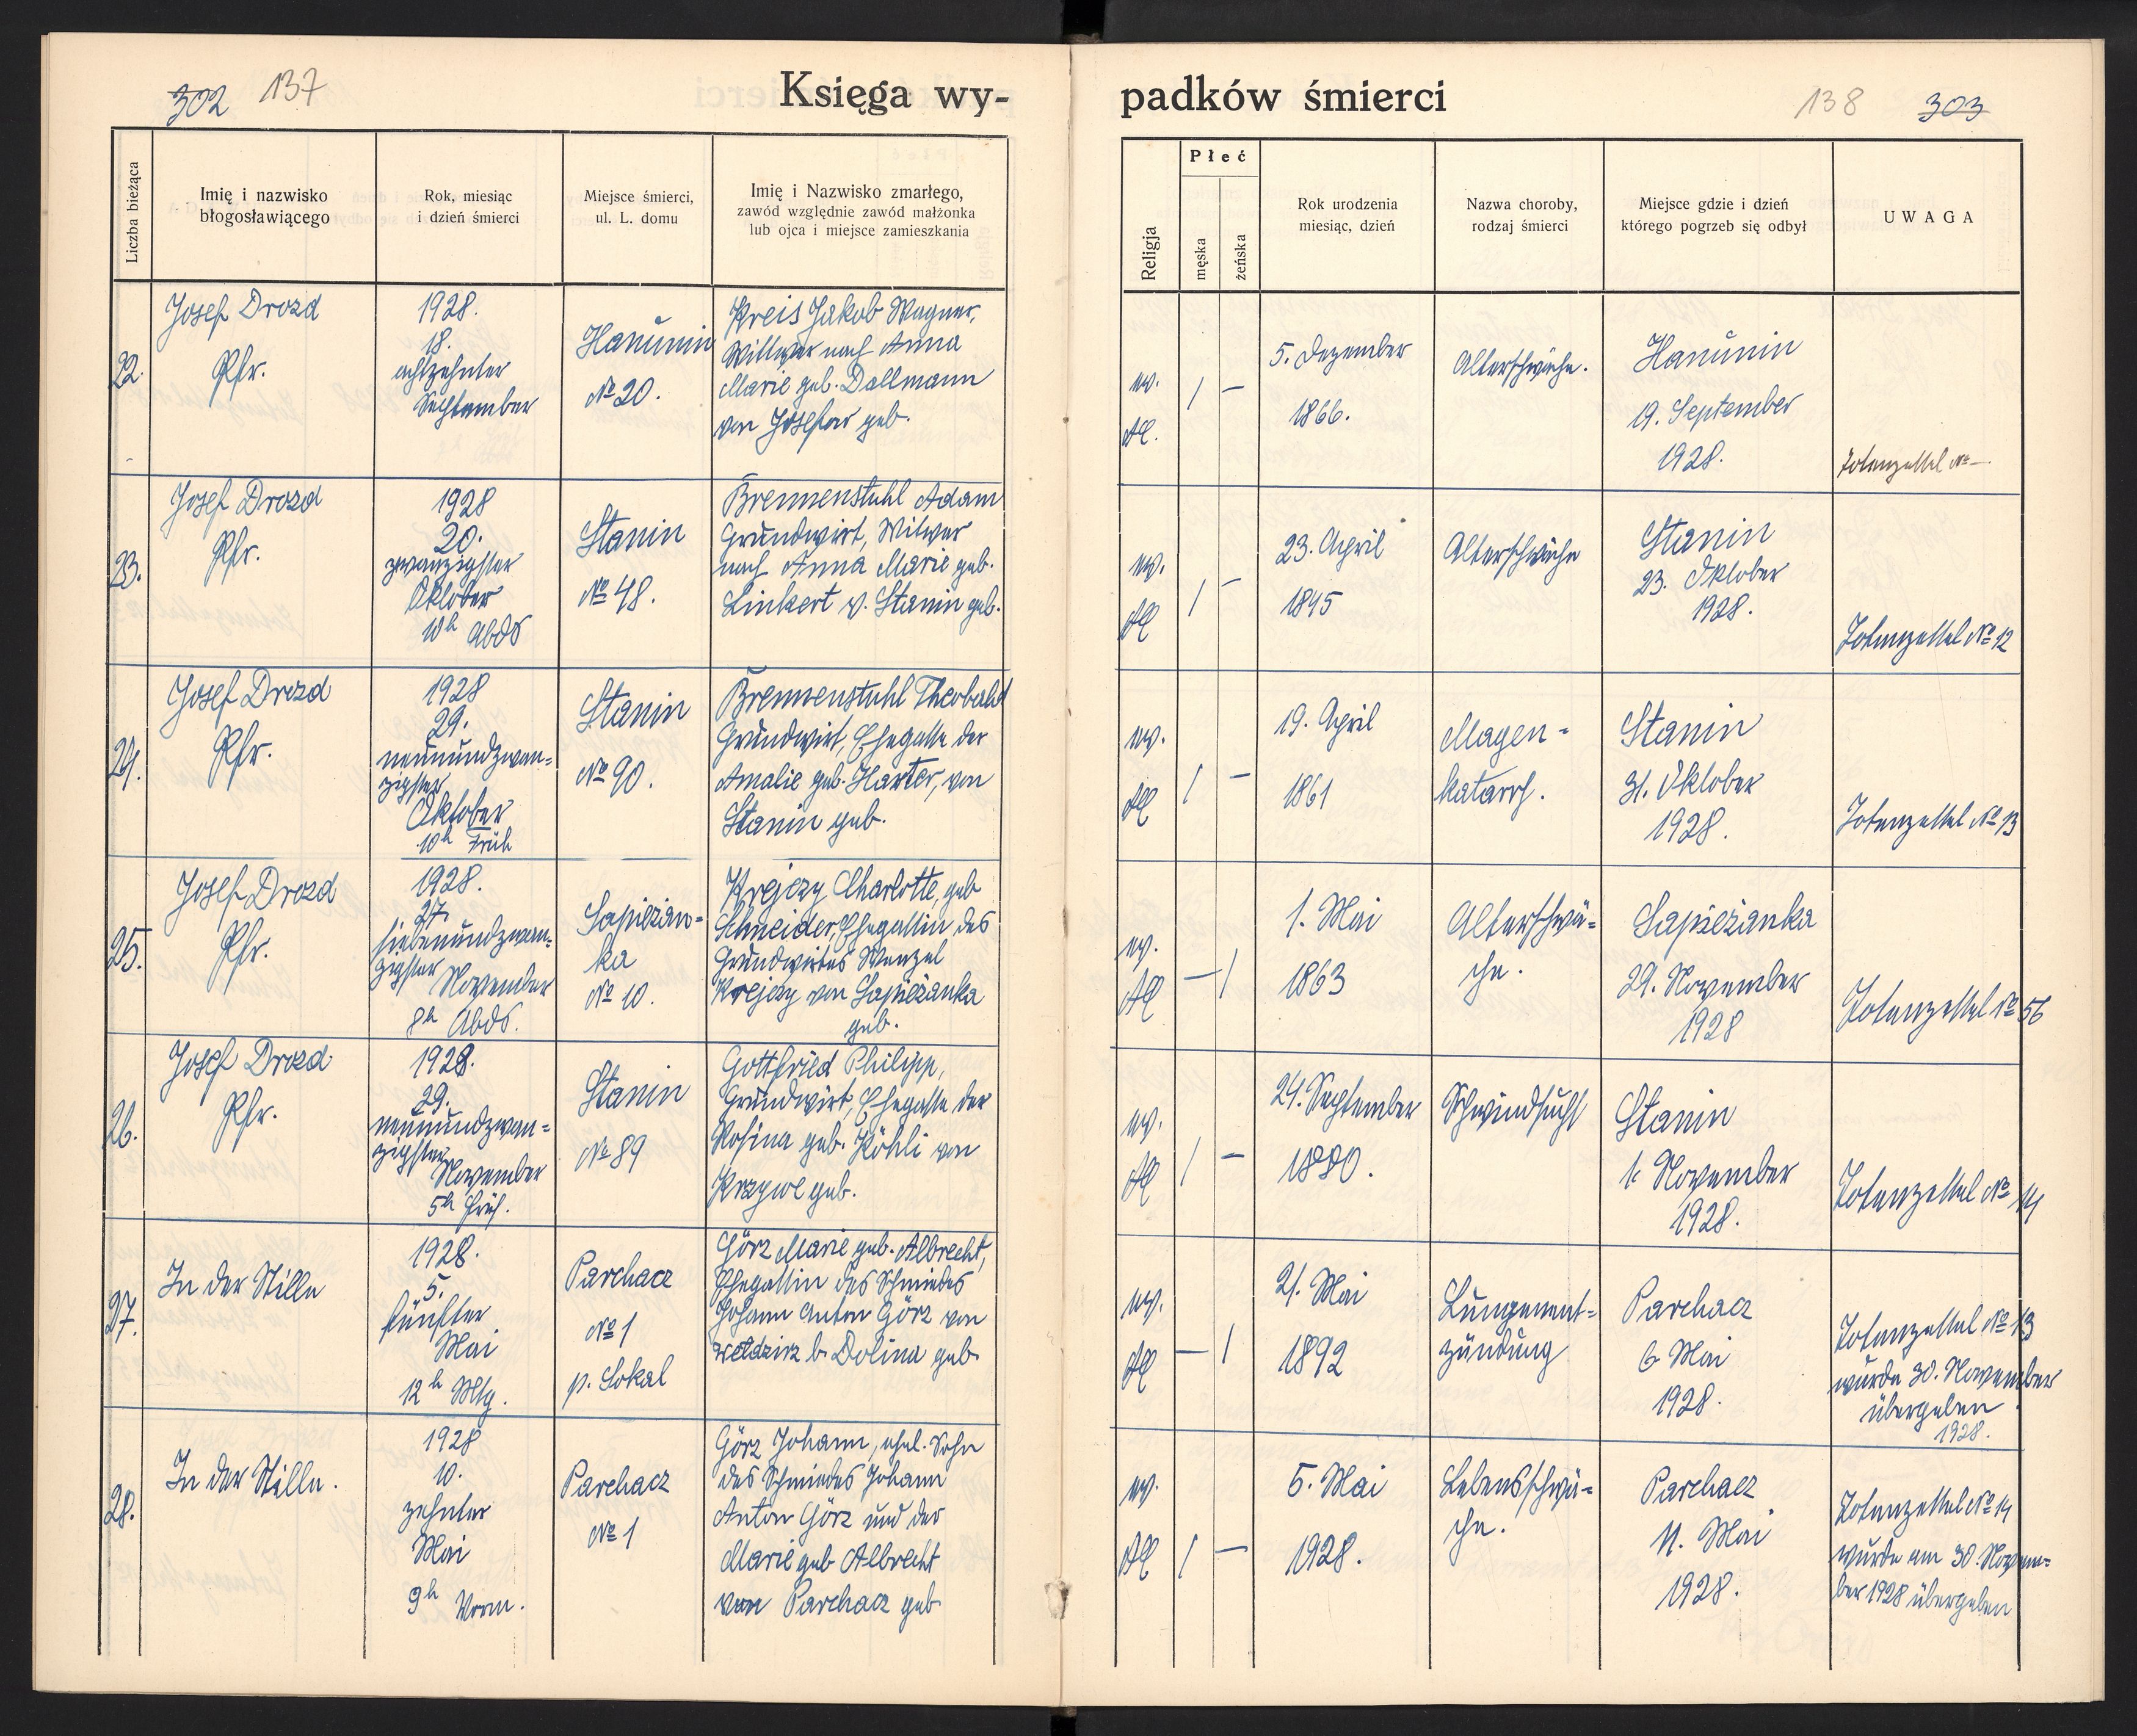 302 137
Księga wy-
padków śmierci
138 303
Liczba bieżąca
Imię i nazwisko
błogosławiącego
Rok, miesiąc
i dzień śmierci
Miejsce śmierci,
ul. L. domu
Imię i Nazwisko zmarłego,
zawód względnie zawód małżonka
lub ojca i miejsce zamieszkania
Religja
Płeć
męska
żeńska
Rok urodzenia
miesiąc, dzień
Nazwa choroby,
rodzaj śmierci
Miejsce gdzie i dzień
którego pogrzeb się odbył
UWAGA
22.
Josef Drozd
Pfr.
1928.
18.
achtzehnter
September
Hanunin
№ 20.
Kreis Jakob Wagner,
Wittwer nach Anna
Marie geb. Dollmann
von geb.
5. Dezember
1866.
Alterschwäche.
Hanunin
19. September
1928.
Totenzettel № —.
23.
Josef Drozd
Pfr.
1928
20.
zwanzigster
Oktober
10h Abds
Stanin
№ 48.
Brennenstuhl Adam
Grundwirt, Witwer
nach Anna Marie geb.
Linkert v. Stanin geb.
23. April
1845
Alterschwäche
Stanin
23. Oktober
1928.
Totenzettel № 12
24.
Josef Drozd
Pfr.
1928
29.
neunundzwan=
zigster
Oktober
10h Früh
Stanin
№ 90.
Brennenstuhl Theobald
Grundwirt, Ehegatte der
Amalie geb. Harter, von
Stanin geb.
19. April
1861
Magen=
katarrh.
Stanin
31. Oktober
1928.
Totenzettel № 13
25.
Josef Drozd
Pfr.
1928.
27.
siebenundzwan=
zigster
November
8h Abds.
Sapiezan=
ka
№ 10.
Krejczy Charlotte, geb
Schneider, Ehegattin des
Grundwirtes Wenzel
Krejczy von Sapieżanka
geb.
1. Mai
1863
Alterschwä=
che.
Sapieżanka
29. November
1928
Totenzettel № 56
26.
Josef Drozd
Pfr.
1928.
29.
neunundzwan=
zigster
November
5h Früh.
Stanin
№ 89
Gottfried Philipp,
Grundwirt, Ehegatte der
Rosina geb. Köhli von
Krzywe geb.
24. September
1880.
Schwindsucht
Stanin
1. November
1928.
Totenzettel № 14
27.
In der Stille
1928.
5.
fünfter
Mai
12h Mttg.
Parchacz
№ 1
p. Sokal
Görz Marie geb. Albrecht,
Ehegattin des Schmiedes
Johann Anton Görz von
b. Dolina geb.
21. Mai
1892
Lungenent=
zündung
Parchacz
6 Mai
1928.
Totenzettel № 13
wurde 30. November
übergeben
1928.
28.
In der Stille.
1928
10.
zehnter
Mai
9h Vorm.
Parchacz
№ 1
Görz Johann, ehel. Sohn
des Schmiedes Johann
Anton Görz und der
Marie geb Albrecht
von Parchacz geb
5. Mai
1928.
Lebensschwä=
che.
Parchacz
11. Mai
1928.
Totenzettel № 14
wurde am 30. Novem=
ber 1928 übergeben